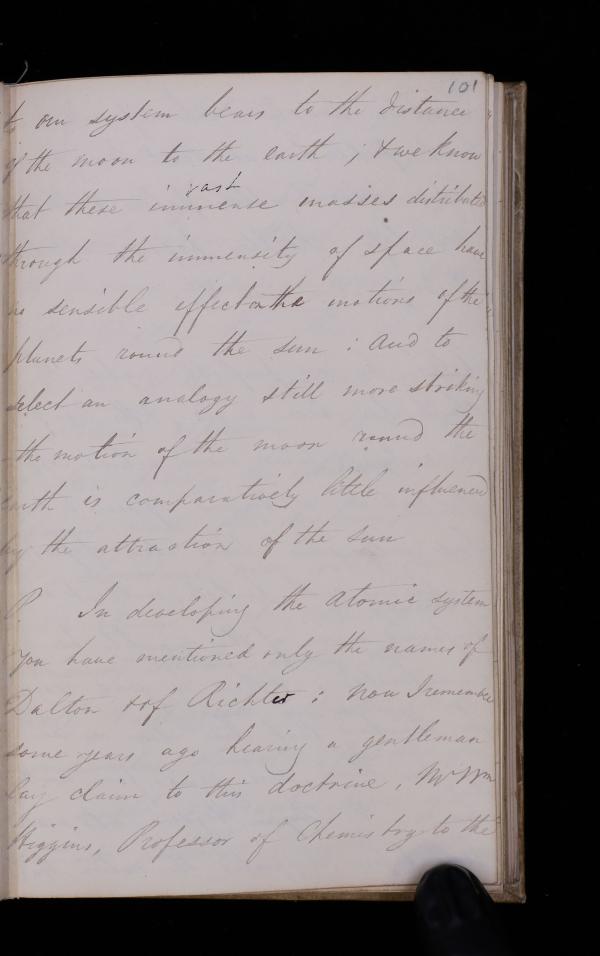 101
to our system bears to the distance
of the moon to the earth ; & we know
vast
that these immense masses distributed
through the immensity of space have
no sensible effect on the motions of the
planets round the sun : and to
select an analogy still more striking
the motion of the moon round the
earth is comparatively little influenced
by the attraction of the sun
P. In developing the atomic system
you have mentioned only the names of
Dalton & of Richter : now I remember
some years ago hearing a gentleman
lay claim to this doctrine, Mr Wm
Higgins, Professor of Chemistry to the